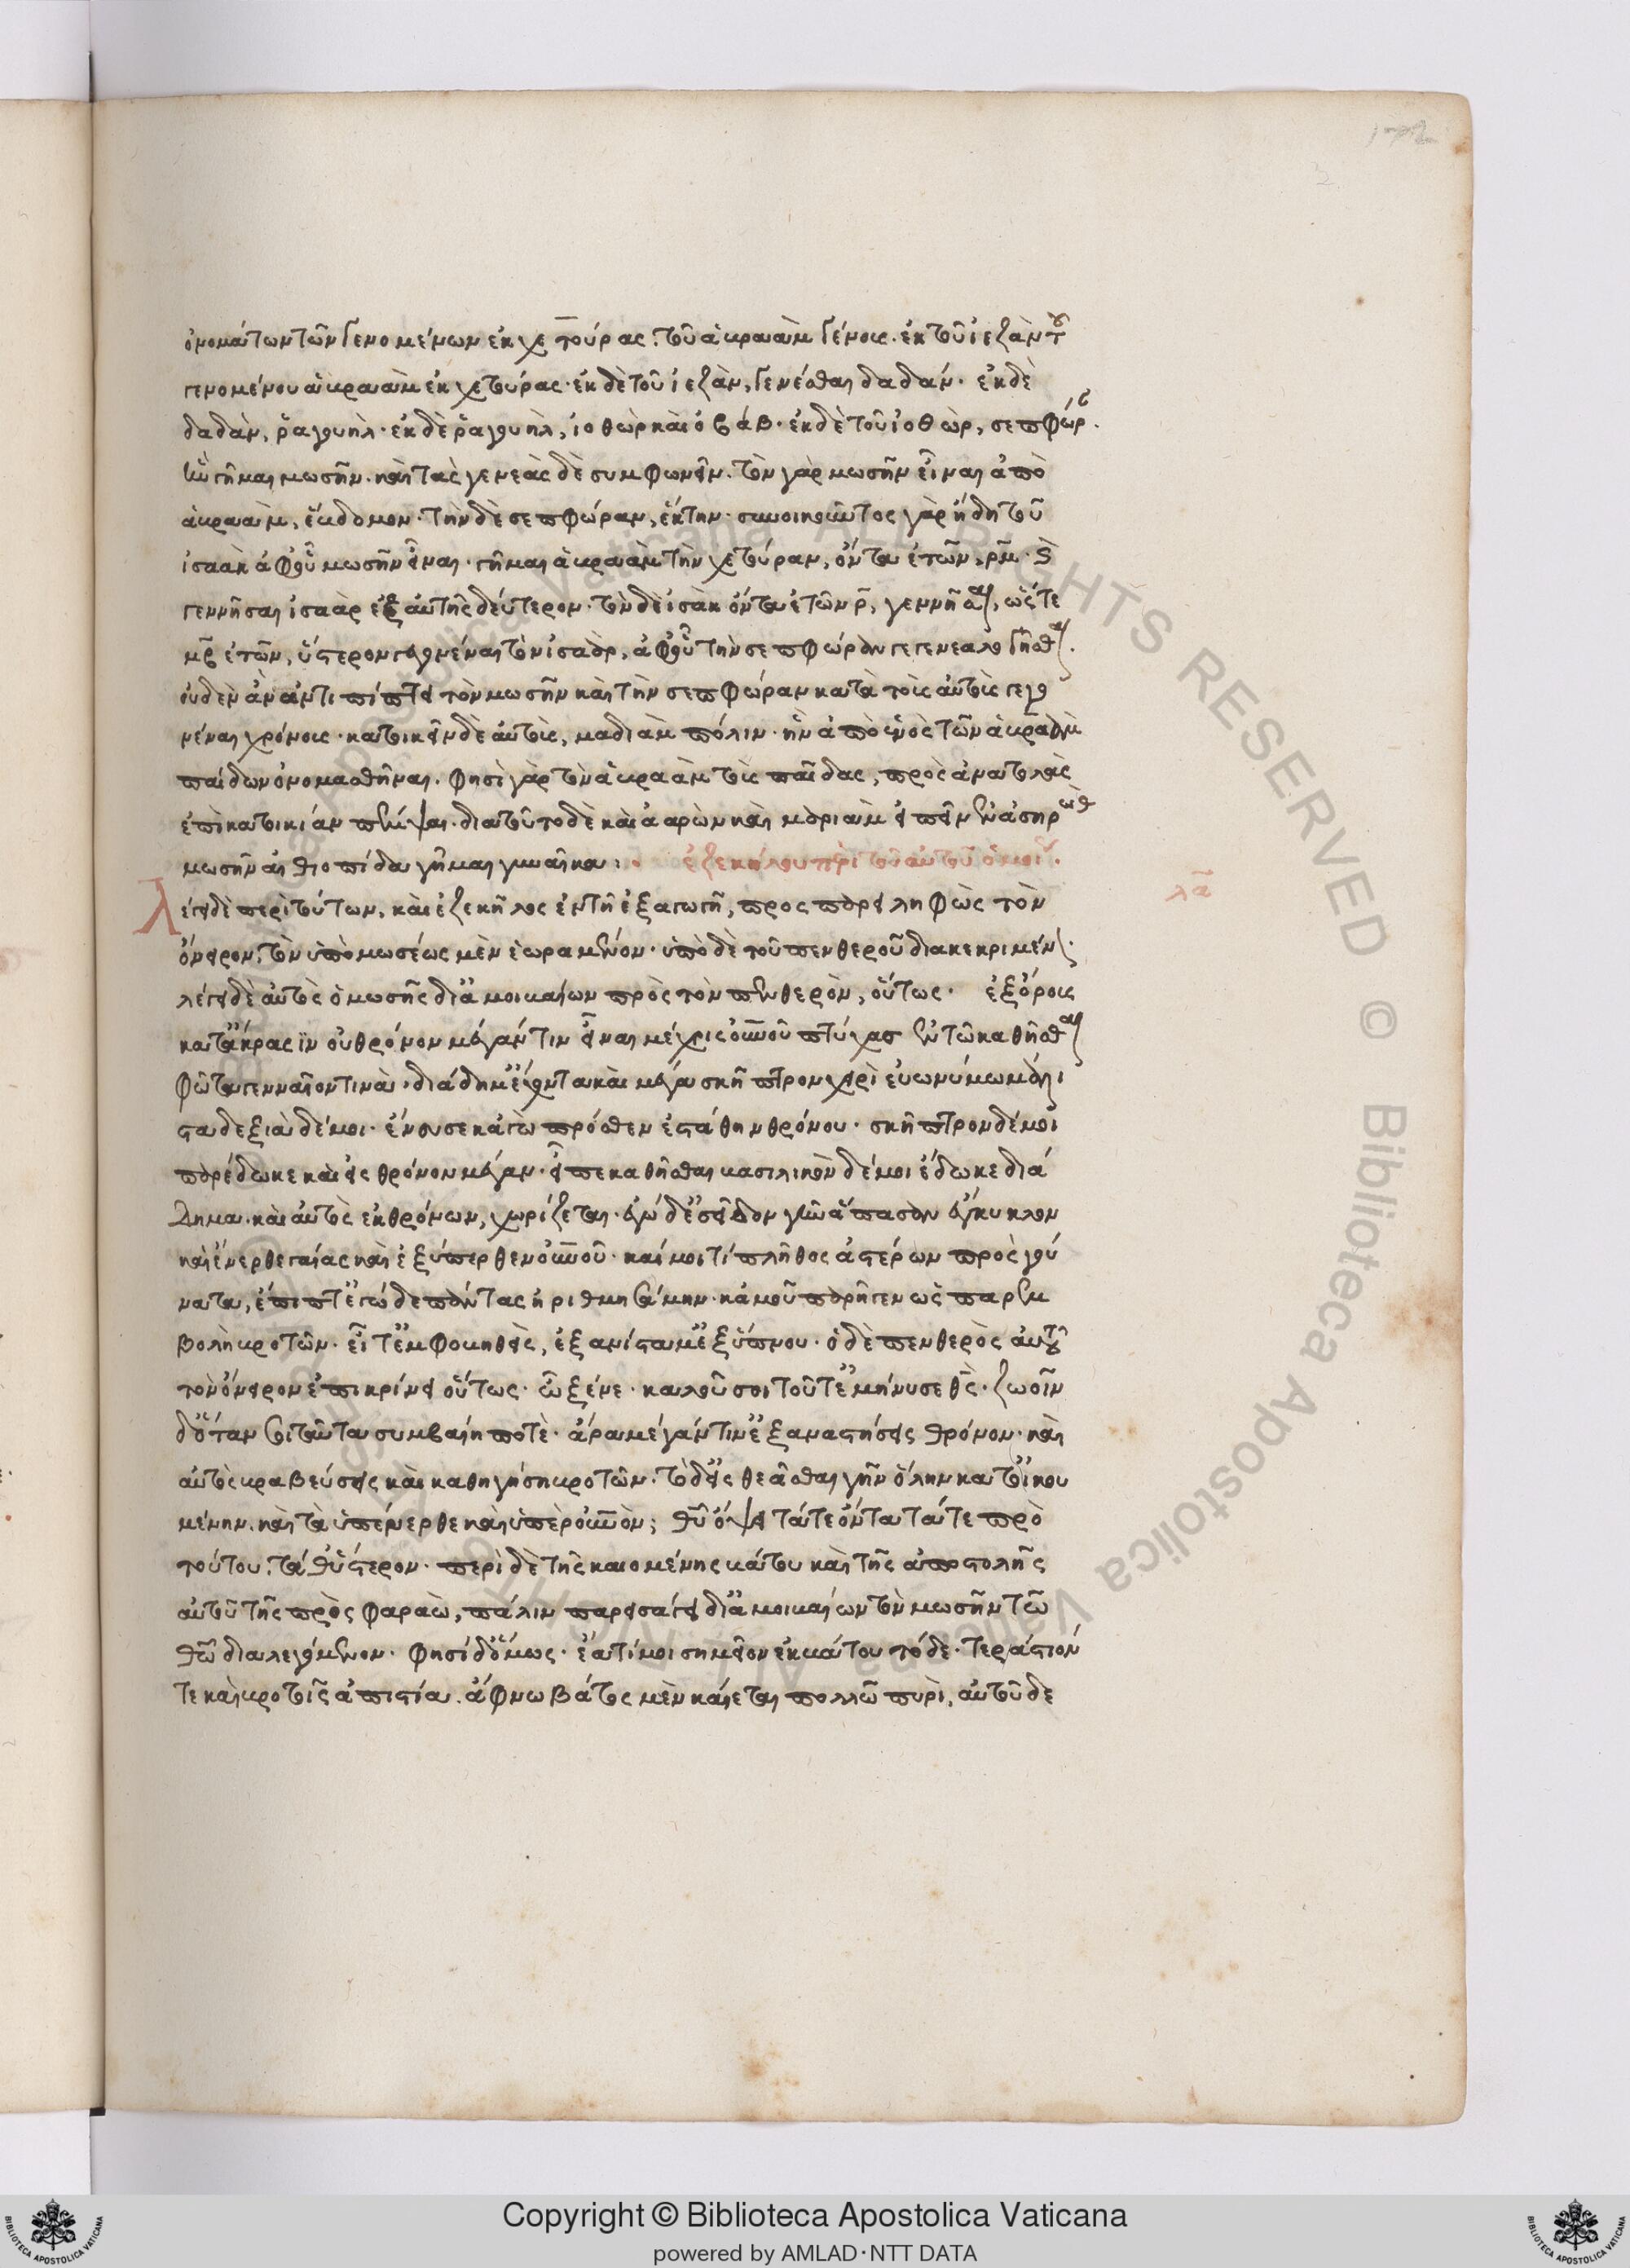 ὀνομάτων τῶν γενομένων ἐκ χετούρας. τοῦ ἀβραὰμ γένους. ἐκ τοῦ ἰεζὰν τοῦ
γενομένου ἀβραὰμ ἐκ χετούρας· ἐκ δὲ τοῦ ἰεζὰν, γενέσθαι δαδάν· ἐκ δὲ
δαδὰν, ῥαγουὴλ· ἐκ δὲ ῥαγουὴλ, ἰοθὼρ καὶ ὀβάβ· ἐκ δὲ τοῦ ἰοθὼρ, σεπφώρ
ἣν γῆμαι μωσῆν. καὶ τὰς γενεὰς δὲ συμφωνεῖν. τὸν γὰρ μωσῆν εἶναι ἀπὸ
ἀβραὰμ, ἕβδομον· τὴν δὲ σεπφώραν, ἕκτην· συνοικοῦντος γὰρ ἤδη τοῦ
ἰσαὰκ ἀφ' οὗ μωσῆν εἶναι· γῆμαι ἀβραὰμ τὴν χετούραν, ὄντα ἐτῶν, ρμ· καὶ
γεννῆσαι ἰσαὰρ ἐξ αὐτῆς δεύτερον· τὸν δὲ ἰσὰκ ὄντα ἐτῶν ρ, γεννῆσαι, ὥστε
μβ ἐτῶν, ὕστερον γεγονέναι τὸν ἰσαὰρ, ἀφ' οὗ τὴν σεπφώραν γεγενεαλογῆσθαι.
οὐδὲν ἀναντιπίπτει τὸν μωσῆν καὶ τὴν σεπφώραν κατὰ τοὺς αὐτοὺς γεγο
νέναι χρόνους· κατοικεῖν δὲ αὐτοὺς, μαδιὰμ πόλιν· ἣν ἀπὸ ἑνὸς τῶν ἀβραὰμ
παίδων ὀνομασθῆναι. φησὶ γὰρ τὸν ἀβραὰμ τοὺς παῖδας, πρὸς ἀνατολὰς
ἐπὶ κατοικίαν πέμψαι· διὰ τοῦτο δὲ καὶ ἀαρὼν καὶ μαριὰμ εἰπεῖν ἐν ἀσηρὼθ
μωσῆν αἰθιοπίδα γῆμαι γυναῖκα: ἐζεκήλου περὶ τοῦ αὐτοῦ ὁμοίου.
λα
λέγει δὲ περὶ τούτων, καὶ ἐζεκῆλος ἐν τῇ ἐξαγωγῇ, προσπαρειληφὼς τὸν
ὄνειρον, τὸν ὑπὸ μωσέως μὲν ἑωραμένον· ὑπὸ δὲ τοῦ πενθεροῦ διακεκριμένον.
λέγει δὲ αὐτὸς ὁ μωσῆς δι' ἀμοιβαίων πρὸς τὸν πενθερὸν, οὕτως· ἐξ ὄρους
κατ' ἄκρας ἰν οὐ θρόνον μέγαν τιν' εἶναι μέχρις οὐνοῦ πτύχας ἐν τῶ καθῆσθαι
φῶτα γενναῖόν τινα· διάδημ' ἔχοντα καὶ μέγα σκῆπτρον χερὶ εὐωνύμω μάλι
στα δεξιᾶ δέ μοι· ἔνευσε κἀγὼ πρόσθεν ἐστάθην θρόνου· σκῆπτρον δέ μοι
παρέδωκε καὶ εἰς θρόνον μέγαν· εἶπε καθῆσθαι βασιλικὸν δέ μοι ἔδωκε διά
δημα· καὶ αὐτὸς ἐκ θρόνων, χωρίζεται· ἐγὼ δ' ἐσεῖδον γῆν ἅπασαν ἔγκυκλον
καὶ ἔνερθε γαίας καὶ ἐξύπερθεν οὐνοῦ· καί μοί τι πλῆθος ἀστέρων πρὸς γού
νατα, ἔπιπτ' ἐγὼ δὲ πάντας ἠριθμησάμην· κἀμοῦ παρῆγεν ὡς παρεμ
βολὴ βροτῶν· εἶτ' ἐμφοβηθεὶς, ἐξανίσταμ' ἐξ ὕπνου· ὁ δὲ πενθερὸς αὐτοῦ
τὸν ὄνειρον ἐπικρίνει οὕτως· ὦ ξένε· καλοῦ σοι τοῦτ' ἐμήνυσε θς· ζωοῖν
δ' ὅταν σοι ταῦτα συμβαίη ποτὲ· ἆρα μέγαν τιν' ἐξαναστήσεις θρόνον· καὶ
αὐτὸς βραβεύσεις καὶ καθηγήση βροτῶν· τὸ δ' εἰς θεᾶσθαι γῆν ὅλην κατοικου
μένην· καὶ τὰ ὑπένερθε καὶ ὑπὲρ οὐνὸν; θῦ ὄψει τά τε ὄντα τά τε πρὸ
τούτου. τά θ' ὕστερον· περὶ δὲ τῆς καιομένης βάτου καὶ τῆς ἀποστολῆς
αὐτοῦ τῆς πρὸς φαραὼ, πάλιν παρεισάγει δι' ἀμοιβαίων τὸν μωσῆν τῶ
θῶ διαλεγόμενον· φησὶ δ' ὅμως· ἔα τί μοι σημεῖον ἐκ βάτου τόδε· τεράστιόν
τε καὶ βροτοῖς ἀπιστία. ἄφνω βάτος μὲν καίεται πολλῶ πυρὶ, αὐτοῦ δὲ
Copyright © Biblioteca Apostolica Vaticana
powered by AMLAD·NTT DATA